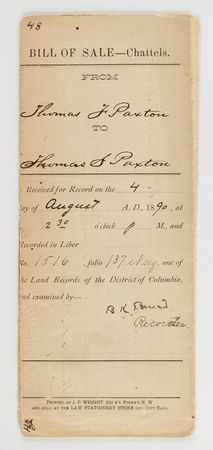 48
BILL OF SALE—Chattels.
FROM
Thomas F Paxton
TO
Thomas S Paxton
Received for Record on the 4
ay of August A. D., 1890, at
2 30 o'clock P M., and
ecorded in Liber
No. 1516, folio 137 et seq, one of
he Land Records of the District of Columbia,
nd examined by—
Recorder.
PRINTED BY J. P. WRIGHT
AND SOLD AT THE LAW STATIONERY STORE OPP. CITY HALL.